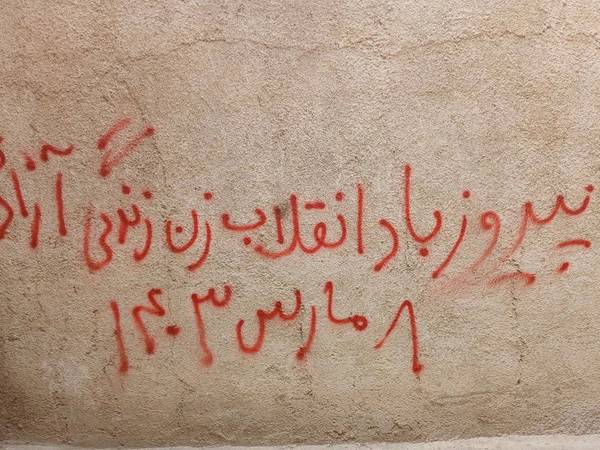 پیروز باد انقلاب زن زندگی آزاد
۸ مارس ۱۴۰۳